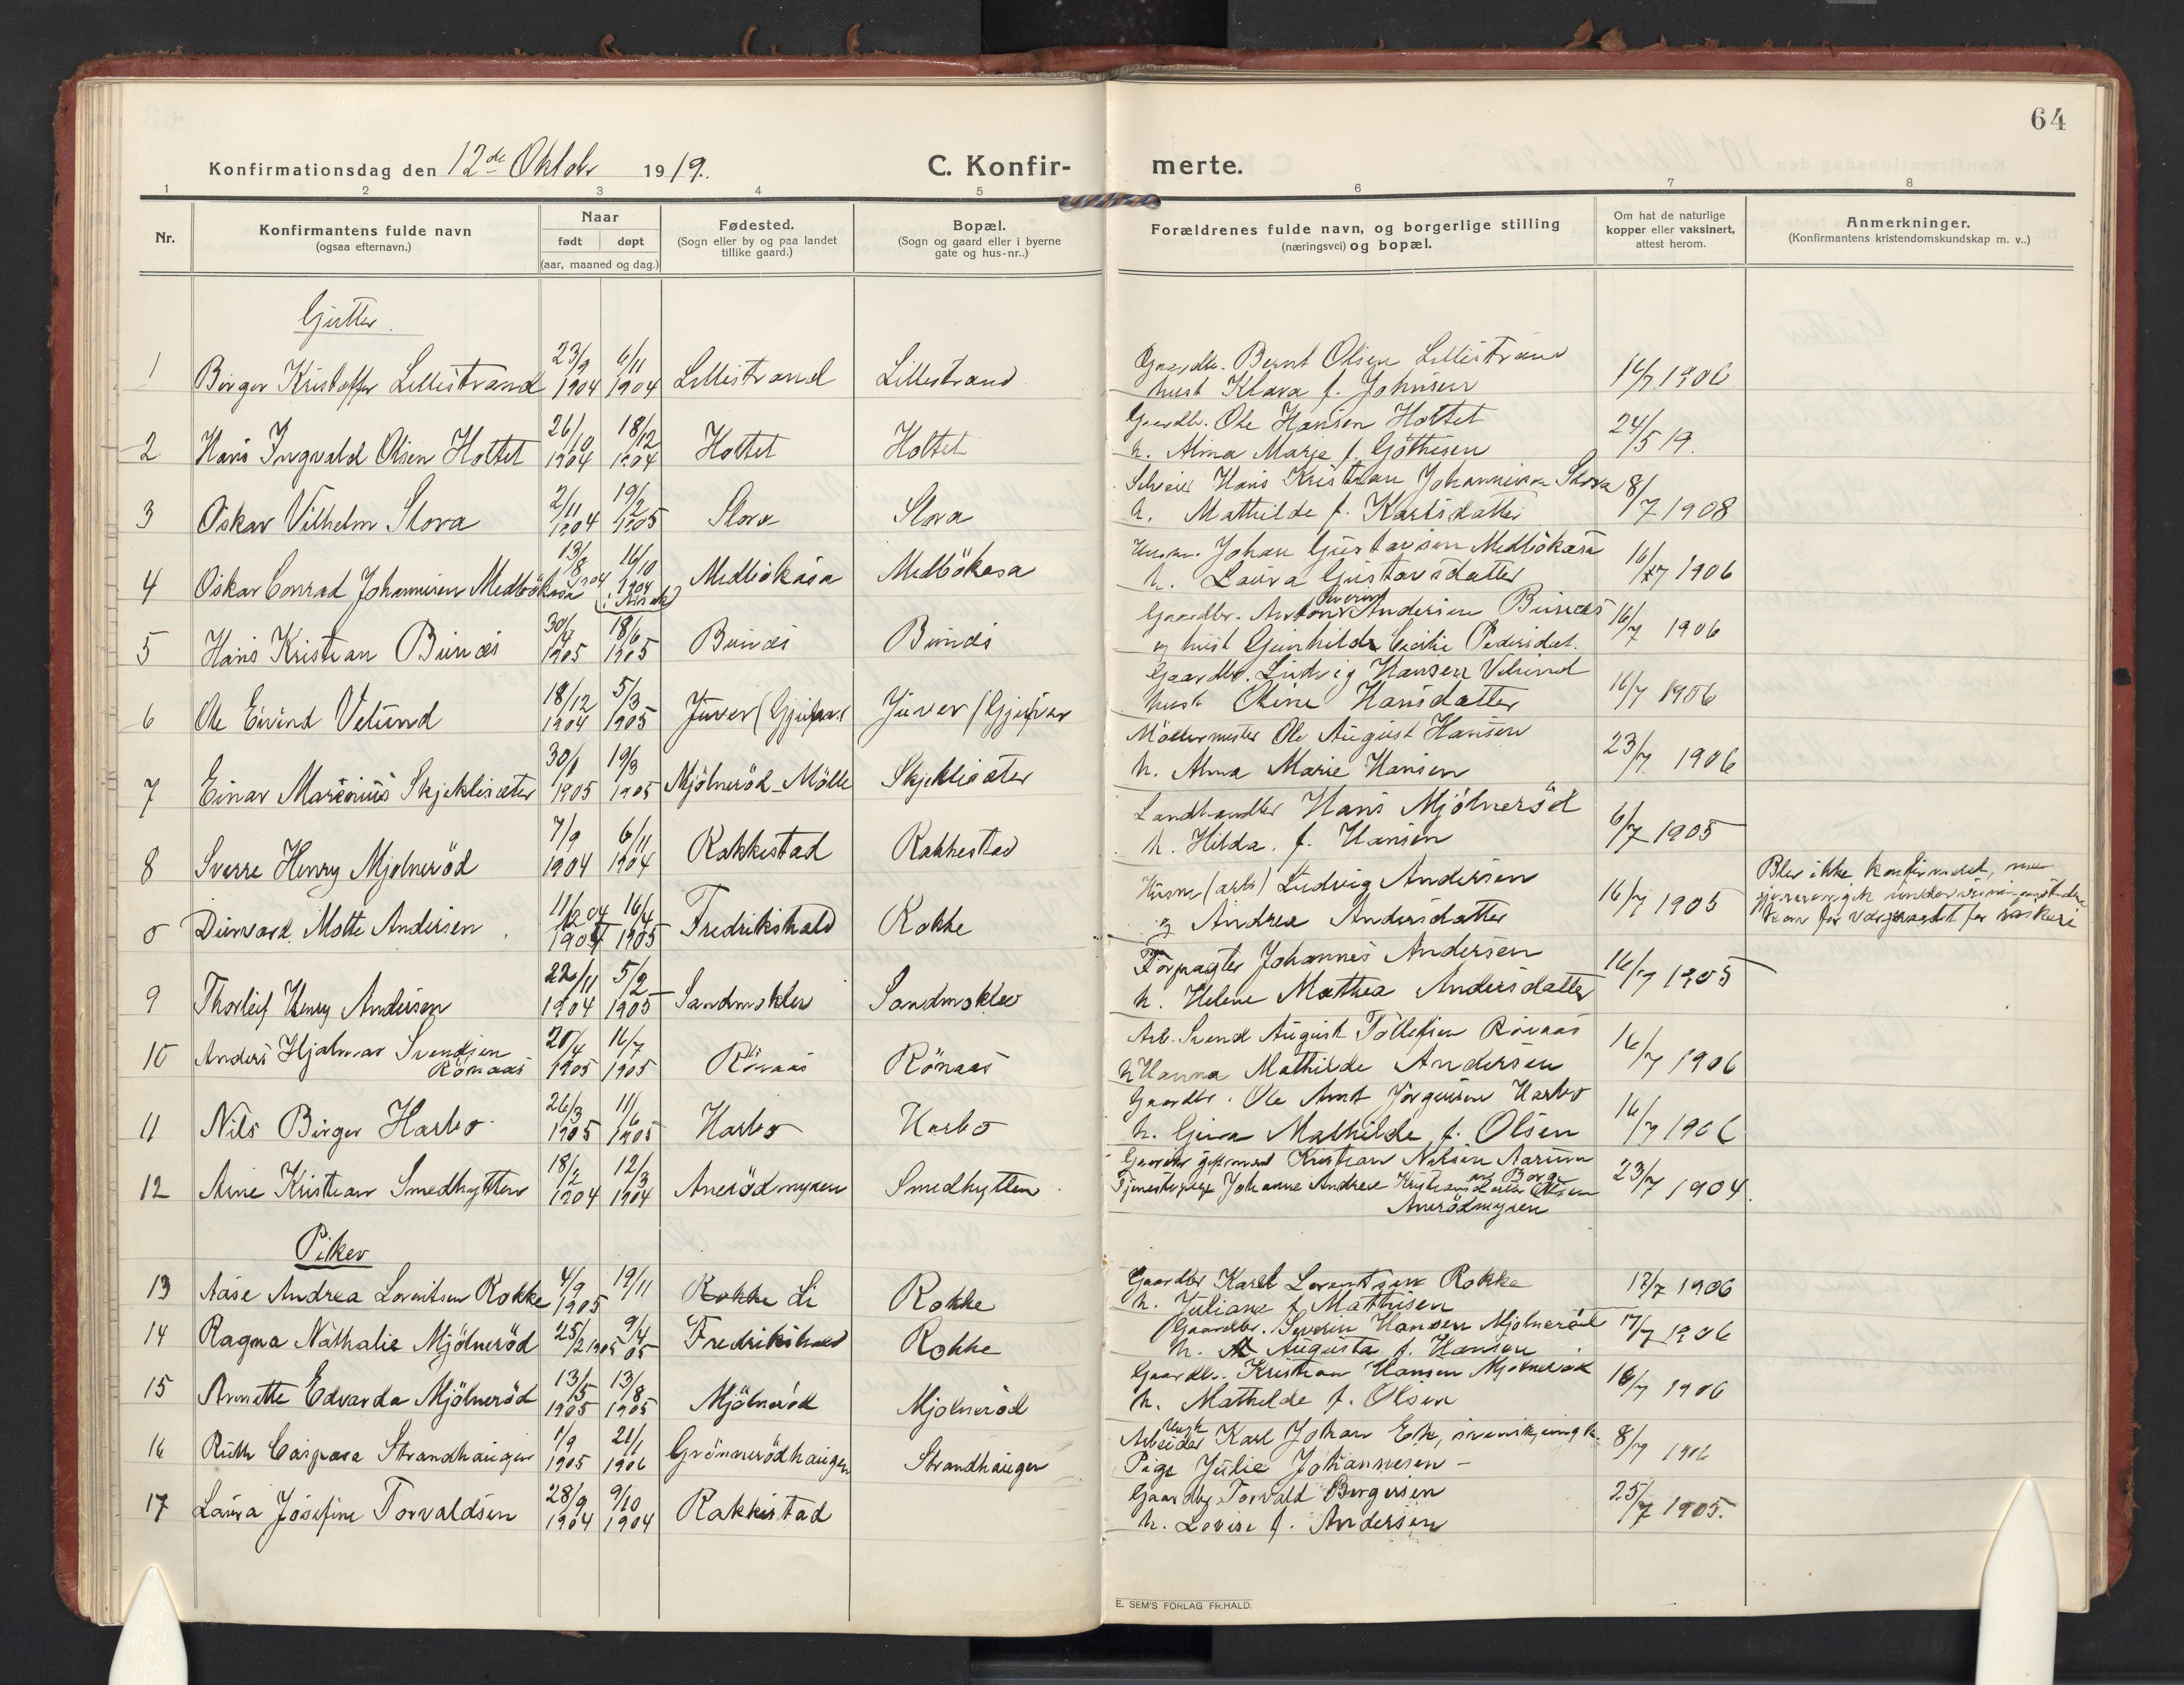 64
Konfirmationsdag den 12de Oktobr 1919.
C. Konfir-
merte.
1 2 3 4 5 6 7 8
Nr.
Konfirmantens fulde navn
(ogsaa efternavn.)
Naar
født døpt
(aar, maaned og dag.)
Fødested.
(Sogn eller by og paa landet
tillike gaard.)
Bopæl.
(Sogn og gaard eller i byerne
gate og hus-nr..)
Forældrenes fulde navn, og borgerlige stilling
(næringsvei) og bopæl.
Om hat de naturlige
kopper eller vaksinert,
attest herom.
Anmerkninger.
(Konfirmantens kristendomskundskap m. v..)
Gutter.
1 Birger Kristoffer Lillestrand 23/9 1904 6/11 1904 Lillestrand Lillestrand Gaardbr. Bernt Olsen Lillestrand
hust Klara f. Johnsen 16/7 1906
2. Hans Ingvald Olsen Holtet 26/10 1904 18/12 1904 Holtet Holtet Gaardbr. Ole Hansen Holtet
h. Alma Marie f. Göthesen 24/5 19.
3 Oskar Vilhelm Slora 2/11 1904 19/2 1905 Slora Slora Hans Kristian Johannesen Slora
h. Mathilde f. Karlsdatter 8/7 1908
4 Oskar Conrad Johannisen Medbökasa 13/8 1904 16/10 1904 Medbökasa Medbökasa Johan Gustavsen Medbökasa
h. Laura Gustavsdatter 16/7 1906
5 Hans Kristian Bunæs 30/4 1905 18/6 1905 Bunæs Bunæs Gaardbr. Anton Severin Andersen Bunæs
og hust Gunhilde Cecilie Pedersdat. 16/7 1906
6 Ole Eivind Velund 18/12 1904 5/3 1905 Juver (Gjulver Juver (Gjulver Gaardbr. Ludvig Hansen Velund
hust Oline Hansdatter 16/7 1906
7 Einar Marinius Skjeklesæter 30/1 1905 19/3 1905 Mjölneröd Mölle Skjeklesæter Möllermester Ole August Hansen
h. Alma Marie Hansen 23/7 1906
8 Sverre Henry Mjølneröd 7/9 1904 6/11 1904 Rakkestad Rakkestad Landhandler Hans Mjölneröd
h. Hilda. f. Hansen 6/7 1905
0 Dünvard Motte Andersen 11/12 04 1904 16/4 1905 Fredrikshald Rokke Husm (arb) Ludvig Andersen
og Andrea Andersdatter 16/7 1905 Blev ikke konfirmeret, men
9 Thorleif Henry Andersen 22/11 1904 5/2 1905 Sandmoklev Sandmoklev Forpagter Johannes Andersen
h. Helene Mathea Andersdatter 16/7 1905
10 Anders Hjalmar Svendsen
Rönaas 20/4 1905 16/7 1905 Rönaas Rönaas Arb. Svend August Tollefsen Rönaas
h Hanna Mathilde Andersen 16/7 1906
11 Nils Birger Harbo 26/3 1905 11/6 1905 Harbo Harbo Gaardbr. Ole Amt Jörgensen Harbo
h. Gina Mathilde f. Olsen 16/7 1906
12 Arne Kristian Smedhytten 18/2 1904 12/3 1904 Anerödmyren Smedhytten Kristian Nilsen Aarum
av Borge
Tjenestepige Johanne Andrea Kristiansdatter Olsen
Anerödmyren 23/7 1904.
Piker
13 Aase Andrea Lorentsen Rokke 4/9 1905 19/11 Rokke Li Rokke Gaardbr Karel Lorentsen Rokke
h. Juliane f. Mathisen 17/7 1906
14 Ragna Nathalie Mjölneröd 25/2 1905 9/4 05 Fredrikshald Rokke Gaardbr. Severin Hansen Mjølneröd
h. Augusta f. Hansen 17/7 1906
15 Annette Edvarda Mjölneröd 13/5 1905 13/8 1905 Mjölneröd Mjølneröd Gaardbr. Kristian Hansen Mjølneröd
h. Mathilde f. Olsen 16/7 1906
16 Ruth Caspara Strandhaugen 1/9 1905 21/1 1906 Grönnerödhaugen Strandhaugen Arbeider Karl Johan Ek, svensk, ungk.
Pige Julie Johannesen - 8/7 1906
17 Laura Josefine Torvaldsen 28/9 1904 9/10 1904 Rakkestad Gaardbr Torvald Borgersen
h. Lovise f. Andersen 25/7 1905.
E. SEM'S FORLAG FR.HALD.